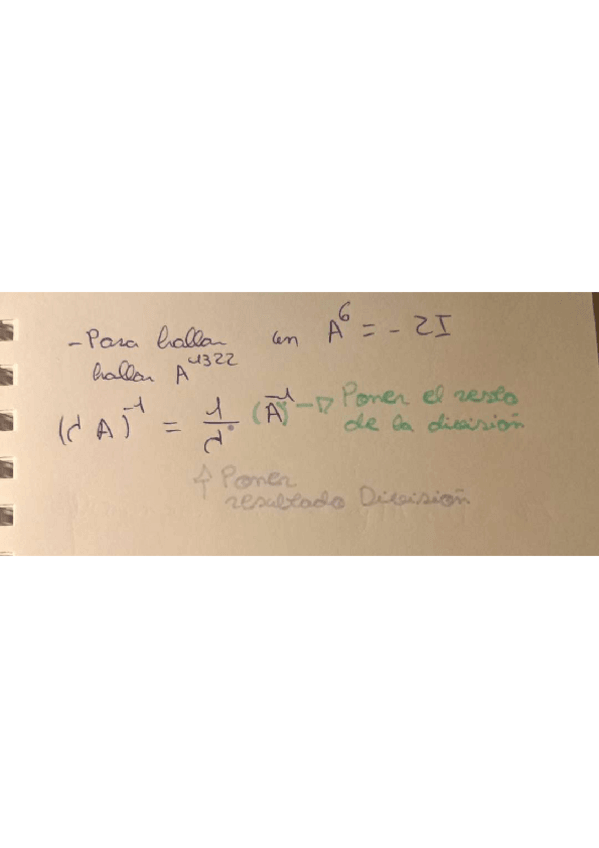 - Para hallar un A^6 = - 2I
hallar A^1322
(λ A)^-1 = 1/λ (A)^-1 → Poner el resto
de la división
↑ Poner
resultado División